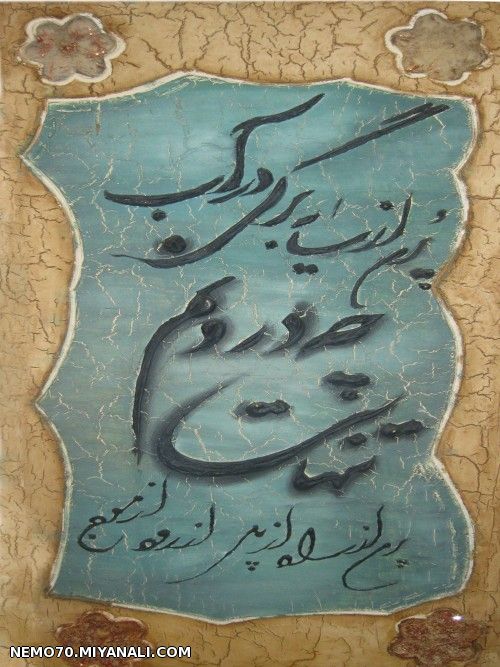 پُرم از سایه برگی در آب
چه درونم
تنهاست
پرم از راه از پل از رود از موج
NEMO70.MIYANALI.COM